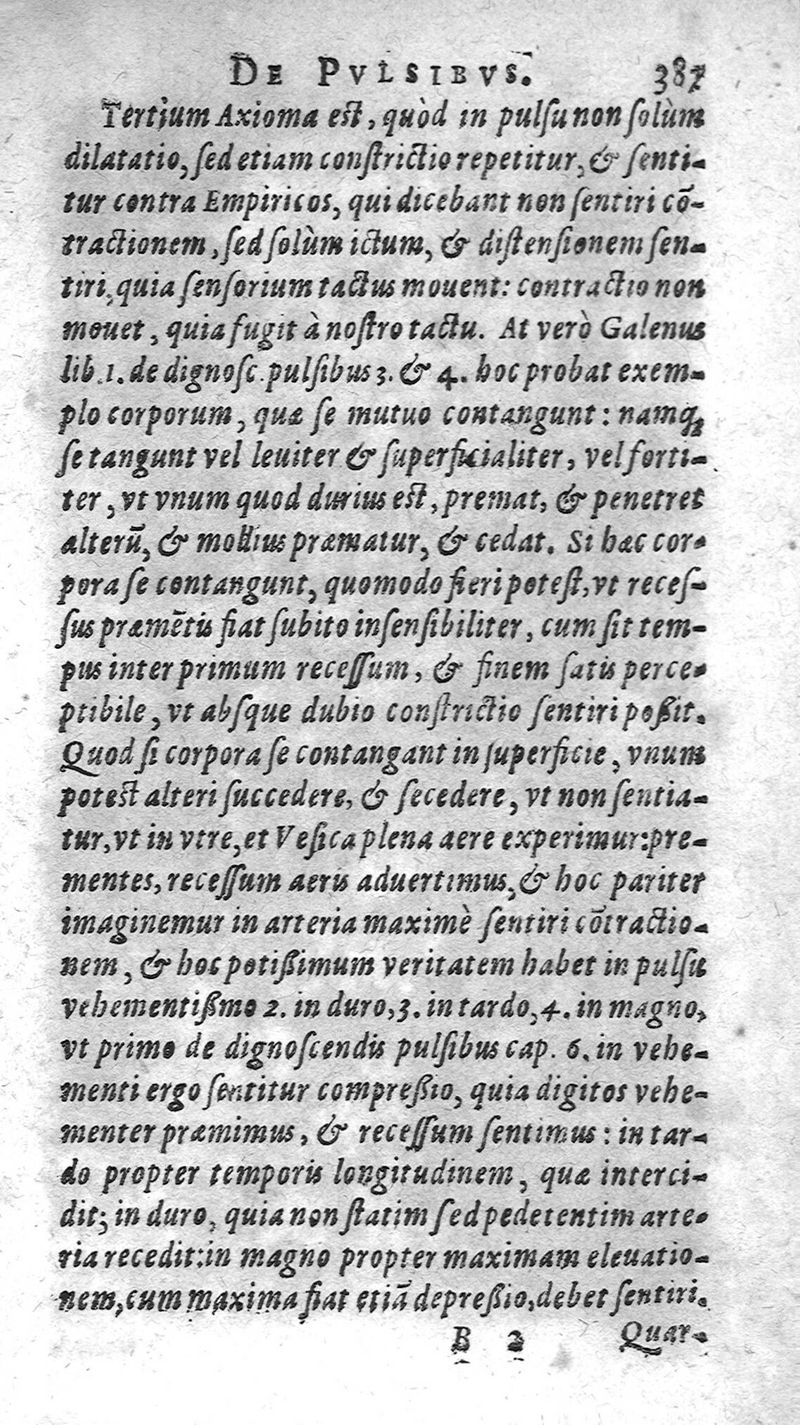 DE PVLSIBVS. 387
Tertium Axioma est, quòd in pulsu non solùm
dilatatio, sed etiam constrictio repetitur, & senti-
tur contra Empiricos, qui dicebant non sentiri cō-
tractionem, sed solùm ictum, & distensionem sen-
tiri, quia sensorium tactus mouent: contractio non
mouet, quia fugit à nostro tactu. At verò Galenus
lib. 1. de dignosc. pulsibus 3. & 4. hoc probat exem-
plo corporum, quæ se mutuo contangunt: namq;
se tangunt vel leuiter & superficialiter, vel forti-
ter, vt vnum quod durius est, premat, & penetret
alterū, & mollius præmatur, & cedat. Si hæc cor-
pora se contangunt, quomodo fieri potest, vt reces-
sus præmētis fiat subito insensibiliter, cum sit tem-
pus inter primum recessum, & finem satis perce-
ptibile, vt absque dubio constrictio sentiri poßit.
Quod si corpora se contangant in superficie, vnum
potest alteri succedere, & secedere, vt non sentia-
tur, vt in vtre, et Vesica plena aere experimur: pre-
mentes, recessum aeris aduertimus, & hoc pariter
imaginemur in arteria maximè sentiri cōtractio-
nem, & hoc potißimum veritatem habet in pulsu
vehementißmo 2. in duro, 3. in tardo, 4. in magno,
vt primo de dignoscendis pulsibus cap. 6. in vehe-
menti ergo sentitur compreßio, quia digitos vehe-
menter præmimus, & recessum sentimus: in tar-
do propter temporis longitudinem, quæ interci-
dit; in duro, quia non statim sed pedetentim arte-
ria recedit: in magno propter maximam eleuatio-
nem, cum maxima fiat etiā depreßio, debet sentiri.
B 2 Quar-